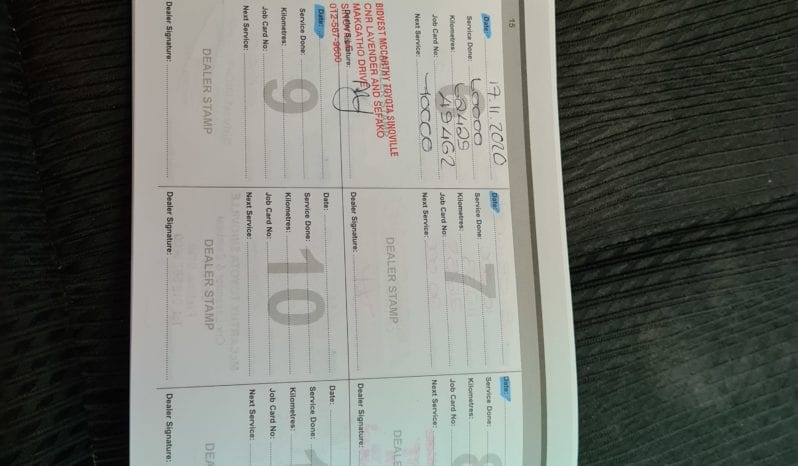 15
Date: 17.11.2020
Service Done: 60000
Kilometres: 60429
Job Card No: 49462
Next Service: 70000
BIDVEST MCCARTHY TOYOTA SINOVILLE
CNR LAVENDER AND SEFAKO
MAKGATHO DRIVE
Signature:
012-567-9600
Date:
Service Done:
Kilometres:
Job Card No:
Next Service:
7
DEALER STAMP
Dealer Signature:
Date:
Service Done:
Kilometres:
Job Card No:
Next Service:
8
DEALE
Dealer Signature:
Date:
Service Done:
Kilometres:
Job Card No:
Next Service:
9
DEALER STAMP
Dealer Signature:
Date:
Service Done:
Kilometres:
Job Card No:
Next Service:
10
DEALER STAMP
Dealer Signature:
Date:
Service Done:
Kilometres:
Job Card No:
Next Service:
1
DEA
Dealer Signature: